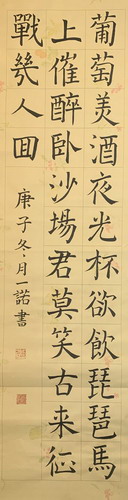 葡萄美酒夜光杯欲飲琵琶馬
上催醉卧沙場君莫笑古来征
戰幾人回
庚子冬月一諾書